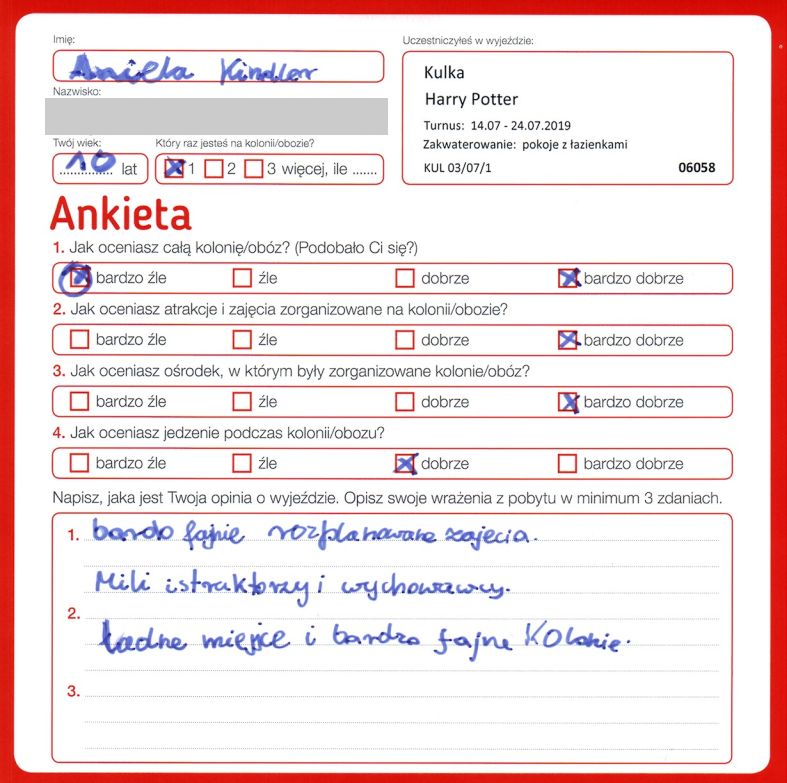 Imię:
Aniela Kindler
Nazwisko:
Twój wiek:
10 lat
Który raz jesteś na kolonii/obozie?
1 2 3 więcej, ile .......
Uczestniczyłeś w wyjeździe:
Kulka
Harry Potter
Turnus: 14.07 - 24.07.2019
Zakwaterowanie: pokoje z łazienkami
KUL 03/07/1 06058
Ankieta
1. Jak oceniasz całą kolonię/obóz? (Podobało Ci się?)
bardzo źle źle dobrze bardzo dobrze
2. Jak oceniasz atrakcje i zajęcia zorganizowane na kolonii/obozie?
bardzo źle źle dobrze bardzo dobrze
3. Jak oceniasz ośrodek, w którym były zorganizowane kolonie/obóz?
bardzo źle źle dobrze bardzo dobrze
4. Jak oceniasz jedzenie podczas kolonii/obozu?
bardzo źle źle dobrze bardzo dobrze
Napisz, jaka jest Twoja opinia o wyjeździe. Opisz swoje wrażenia z pobytu w minimum 3 zdaniach.
1. bardo fajnie rozplanowane zajęcia.
Mili istruktorzy i wychowawcy.
2.
Ładne miejce i bardzo fajne Kolonie.
3.